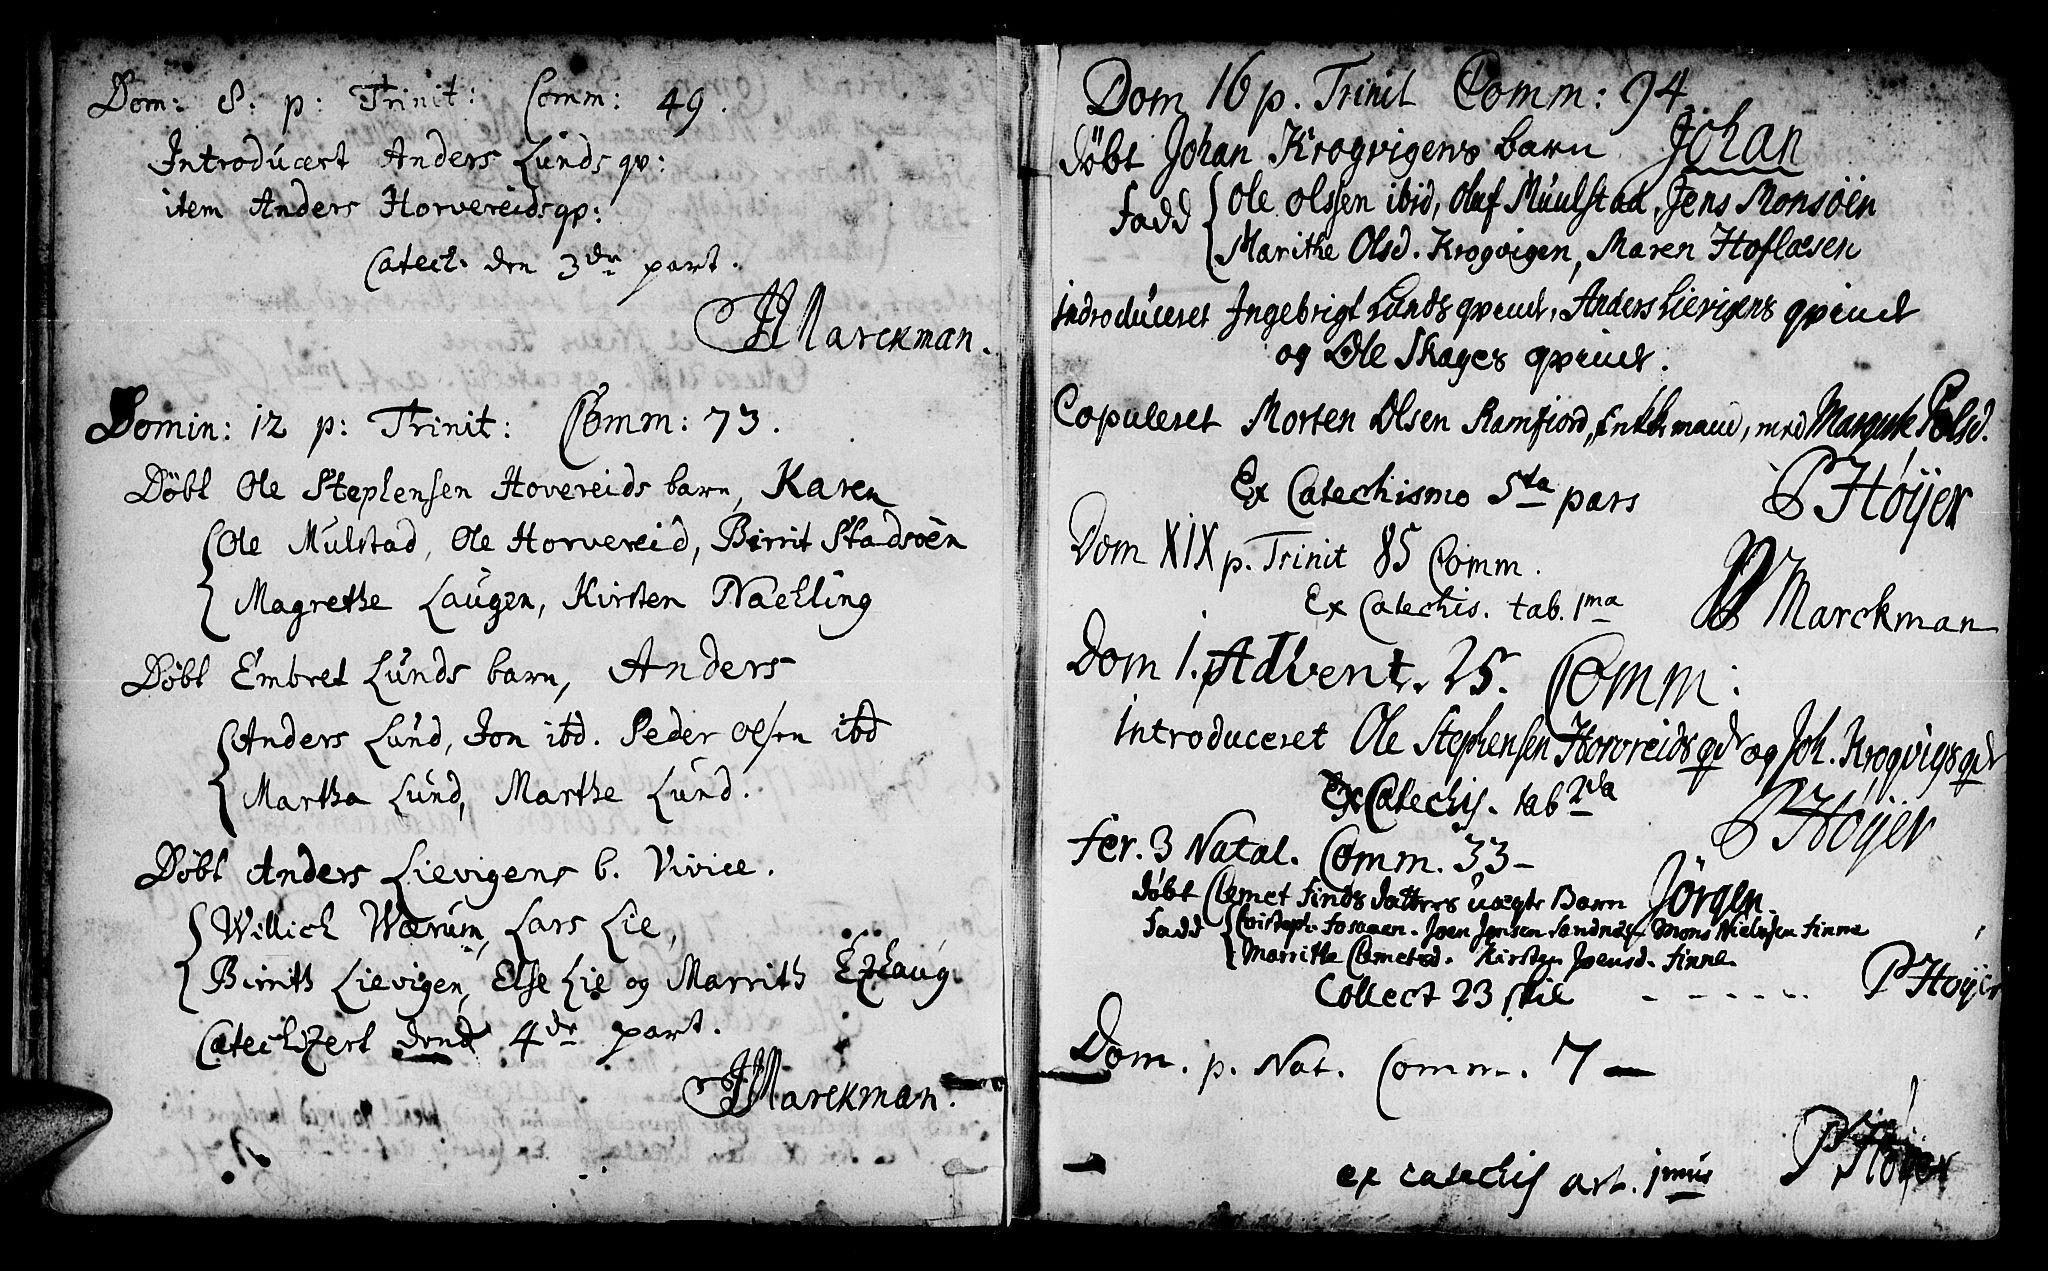 Dom: 8: p: Trinit: Comm: 49.
Introducert Anders Lunds qv:
item Anders Horvereids qv:
Catech. den 3de part.
HMarckman.
Domin: 12 p: Trinit: Comm: 73.
Döbt Ole Stephensen Hovereids barn, Karen
Ole Mulstad, Ole Horvereid, Birrit Stadsöen
Magrethe Laugen, Kirsten Nachling
Döbt Embret Lunds barn, Anders
Anders Lund, Jon ibd. Peder Olsen ibd
Martha Lund, Marthe Lund.
Döbt Anders Lievigens b. Vivice.
Willich Wærum, Lars Lie,
Birrith Lievigen, Else Lie og Marrith Ezhaug.
Catechizert 4de part.
HMarckman.
Dom 16 p. Trinit Comm: 94
döbt Johan Krogvigens barn Johan
fadd Ole Olssen ibid, Oluf Muulstad, Jens Monsöen
Marithe Olsd. Krogvigen, Maren Hoflæsen
introduceret Ingebrigt Lunds qvinde, Anders Lievigens qvinde
og Ole Skages qvinde.
Copuleret Morten Olsen Ramfiord, Enkkemand, med Olsd.
Ex Catechismo 5ta pars PHöÿer
Dom XIX p. Trinit 85 Comm.
Ex Catechis. tab. 1ma HMarckman
Dom 1. Advent. 25. Comm:
Introduceret Ole Stephensen Horvreids qv og Joh. Krogvigs qv
Ex Catechis. tab 2da PHöÿer
fer. 3 Natal. Comm. 33 –
döbt Clemet finds datters uægte Barn Jörgen
fadd Joen Jonsen Mons Nielsen finne
Marrithe Clemetsd. Kirsten finne
Collect 23 skil - - - - - - PHöÿer
Dom. p. Nat. Comm. 7 –
ex catechis art. 1mus PHöÿer